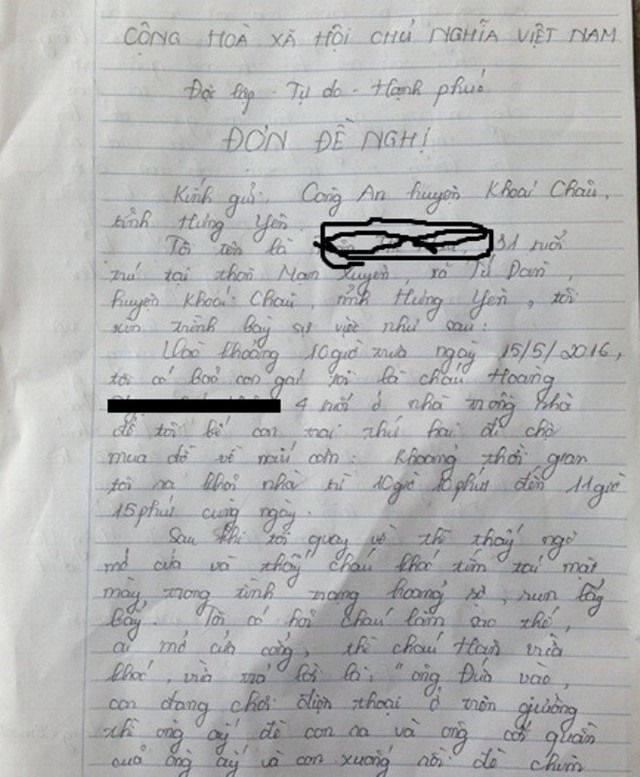 CỘNG HOÀ XÃ HỘI CHỦ NGHĨA VIỆT NAM
Độc lập - Tự do - Hạnh phúc
ĐƠN ĐỀ NGHỊ
Kính gửi: Công An huyện Khoái Châu,
tỉnh Hưng Yên.
Tôi tên là 31 tuổi
trú tại thôn Mạn Xuyên, xã Tứ Dân,
huyện Khoái Châu, tỉnh Hưng Yên, tôi
xin trình bày sự việc như sau:
Vào khoảng 10 giờ trưa ngày 15/5/2016,
tôi có bảo con gái tôi là cháu Hoàng
4 tuổi ở nhà trông nhà
để tôi bế con trai thứ hai đi chợ
mua đồ về nấu cơm. Khoảng thời gian
tôi ra khỏi nhà từ 10 giờ 10 phút đến 11 giờ
15 phút cùng ngày.
Sau khi tôi quay về thì thấy ngỏ
mở cửa và thấy cháu khóc tím tái mặt
mày trong tình trạng hoảng sợ, run lẩy
bẩy. Tôi có hỏi cháu làm sao thế,
ai mở cửa cổng, thì cháu Hân vừa
khóc, vừa trả lời là: "ông Đưa vào,
con đang chơi điện thoại ở trên giường
thì ông ấy đè con ra và ông cởi quần
của ông ấy và con xuống rồi để chim